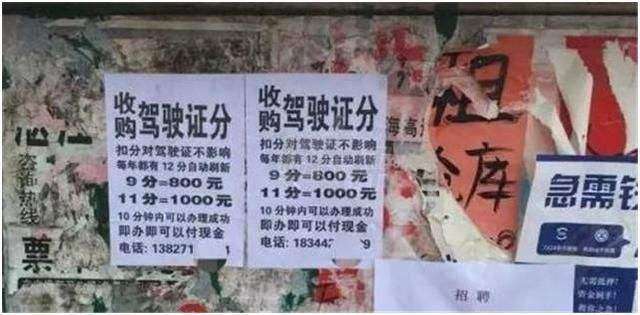 收购驾驶证分
扣分对驾驶证不影响
每年都有12分自动刷新
9分=800元
11分=1000元
10分钟内可以办理成功
即办即可以付现金
电话: 13827
收购驾驶证分
扣分对驾驶证不影响
每年都有12分自动刷新
9分=800元
11分=1000元
10分钟内可以办理成功
即办即可以付现金
电话: 18344 9
海高
热线
票
租
库
急需钱
无需抵押!
招聘